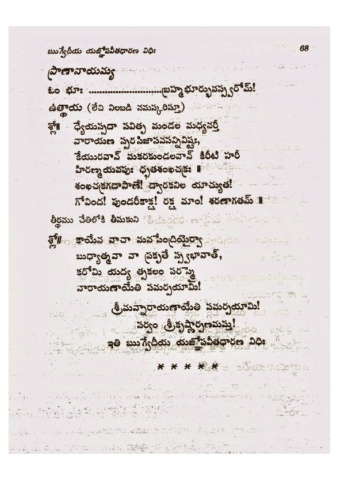 ఋగ్వేదీయ యజ్ఞోపవీతధారణ విధిః 68
ప్రాణానాయమ్య
ఓం భూః ..............................బ్రహ్మభూర్భువస్స్వరోమ్!
ఉత్థాయ (లేచి నిలబడి నమస్కరిస్తూ)
శ్లో॥ ధ్యేయస్సదా సవితృ మండల మధ్యవర్తీ
నారాయణ స్సరసిజాసనసన్నివిష్టః,
కేయురవాన్ మకరకుండలవాన్ కిరీటి హరీ
హిరణ్మయవపుః ధృతశంఖచక్రః ॥
శంఖచక్రగదాపాణే! ద్వారకానిల యాచ్యుత!
గోవింద! పుండరీకాక్ష! రక్ష మాం! శరణాగతమ్ ॥
తీర్థము చేతిలోకి తీసుకుని
శ్లో॥ కాయేన వాచా మనసేంద్రియైర్వా
బుధ్యాత్మనా వా ప్రకృతే స్స్వభావాత్,
కరోమి యద్య త్సకలం పరస్మై
నారాయణాయేతి సమర్పయామి!
శ్రీమన్నారాయణాయేతి సమర్పయామి!
సర్వం శ్రీకృష్ణార్పణమస్తు!
ఇతి ఋగ్వేదీయ యజ్ఞోపవీతధారణ విధిః
* * * * *